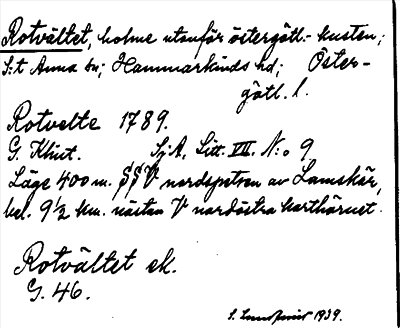 Rotvältet, holme utanför östergötl.- kusten;
S:t Anna sn; Hammarkinds hd; Öster-
götl. l.
Rotvelte 1789.
G. Klint. SjA, Litt. VII N:o 9
Läge 400 m. SSV nordspetsen av Lamskär,
bel. 9½ km. nästan V nordöstra karthörnet.
Rotvältet ek.
G. 46.
S. Lundqvist 1939.